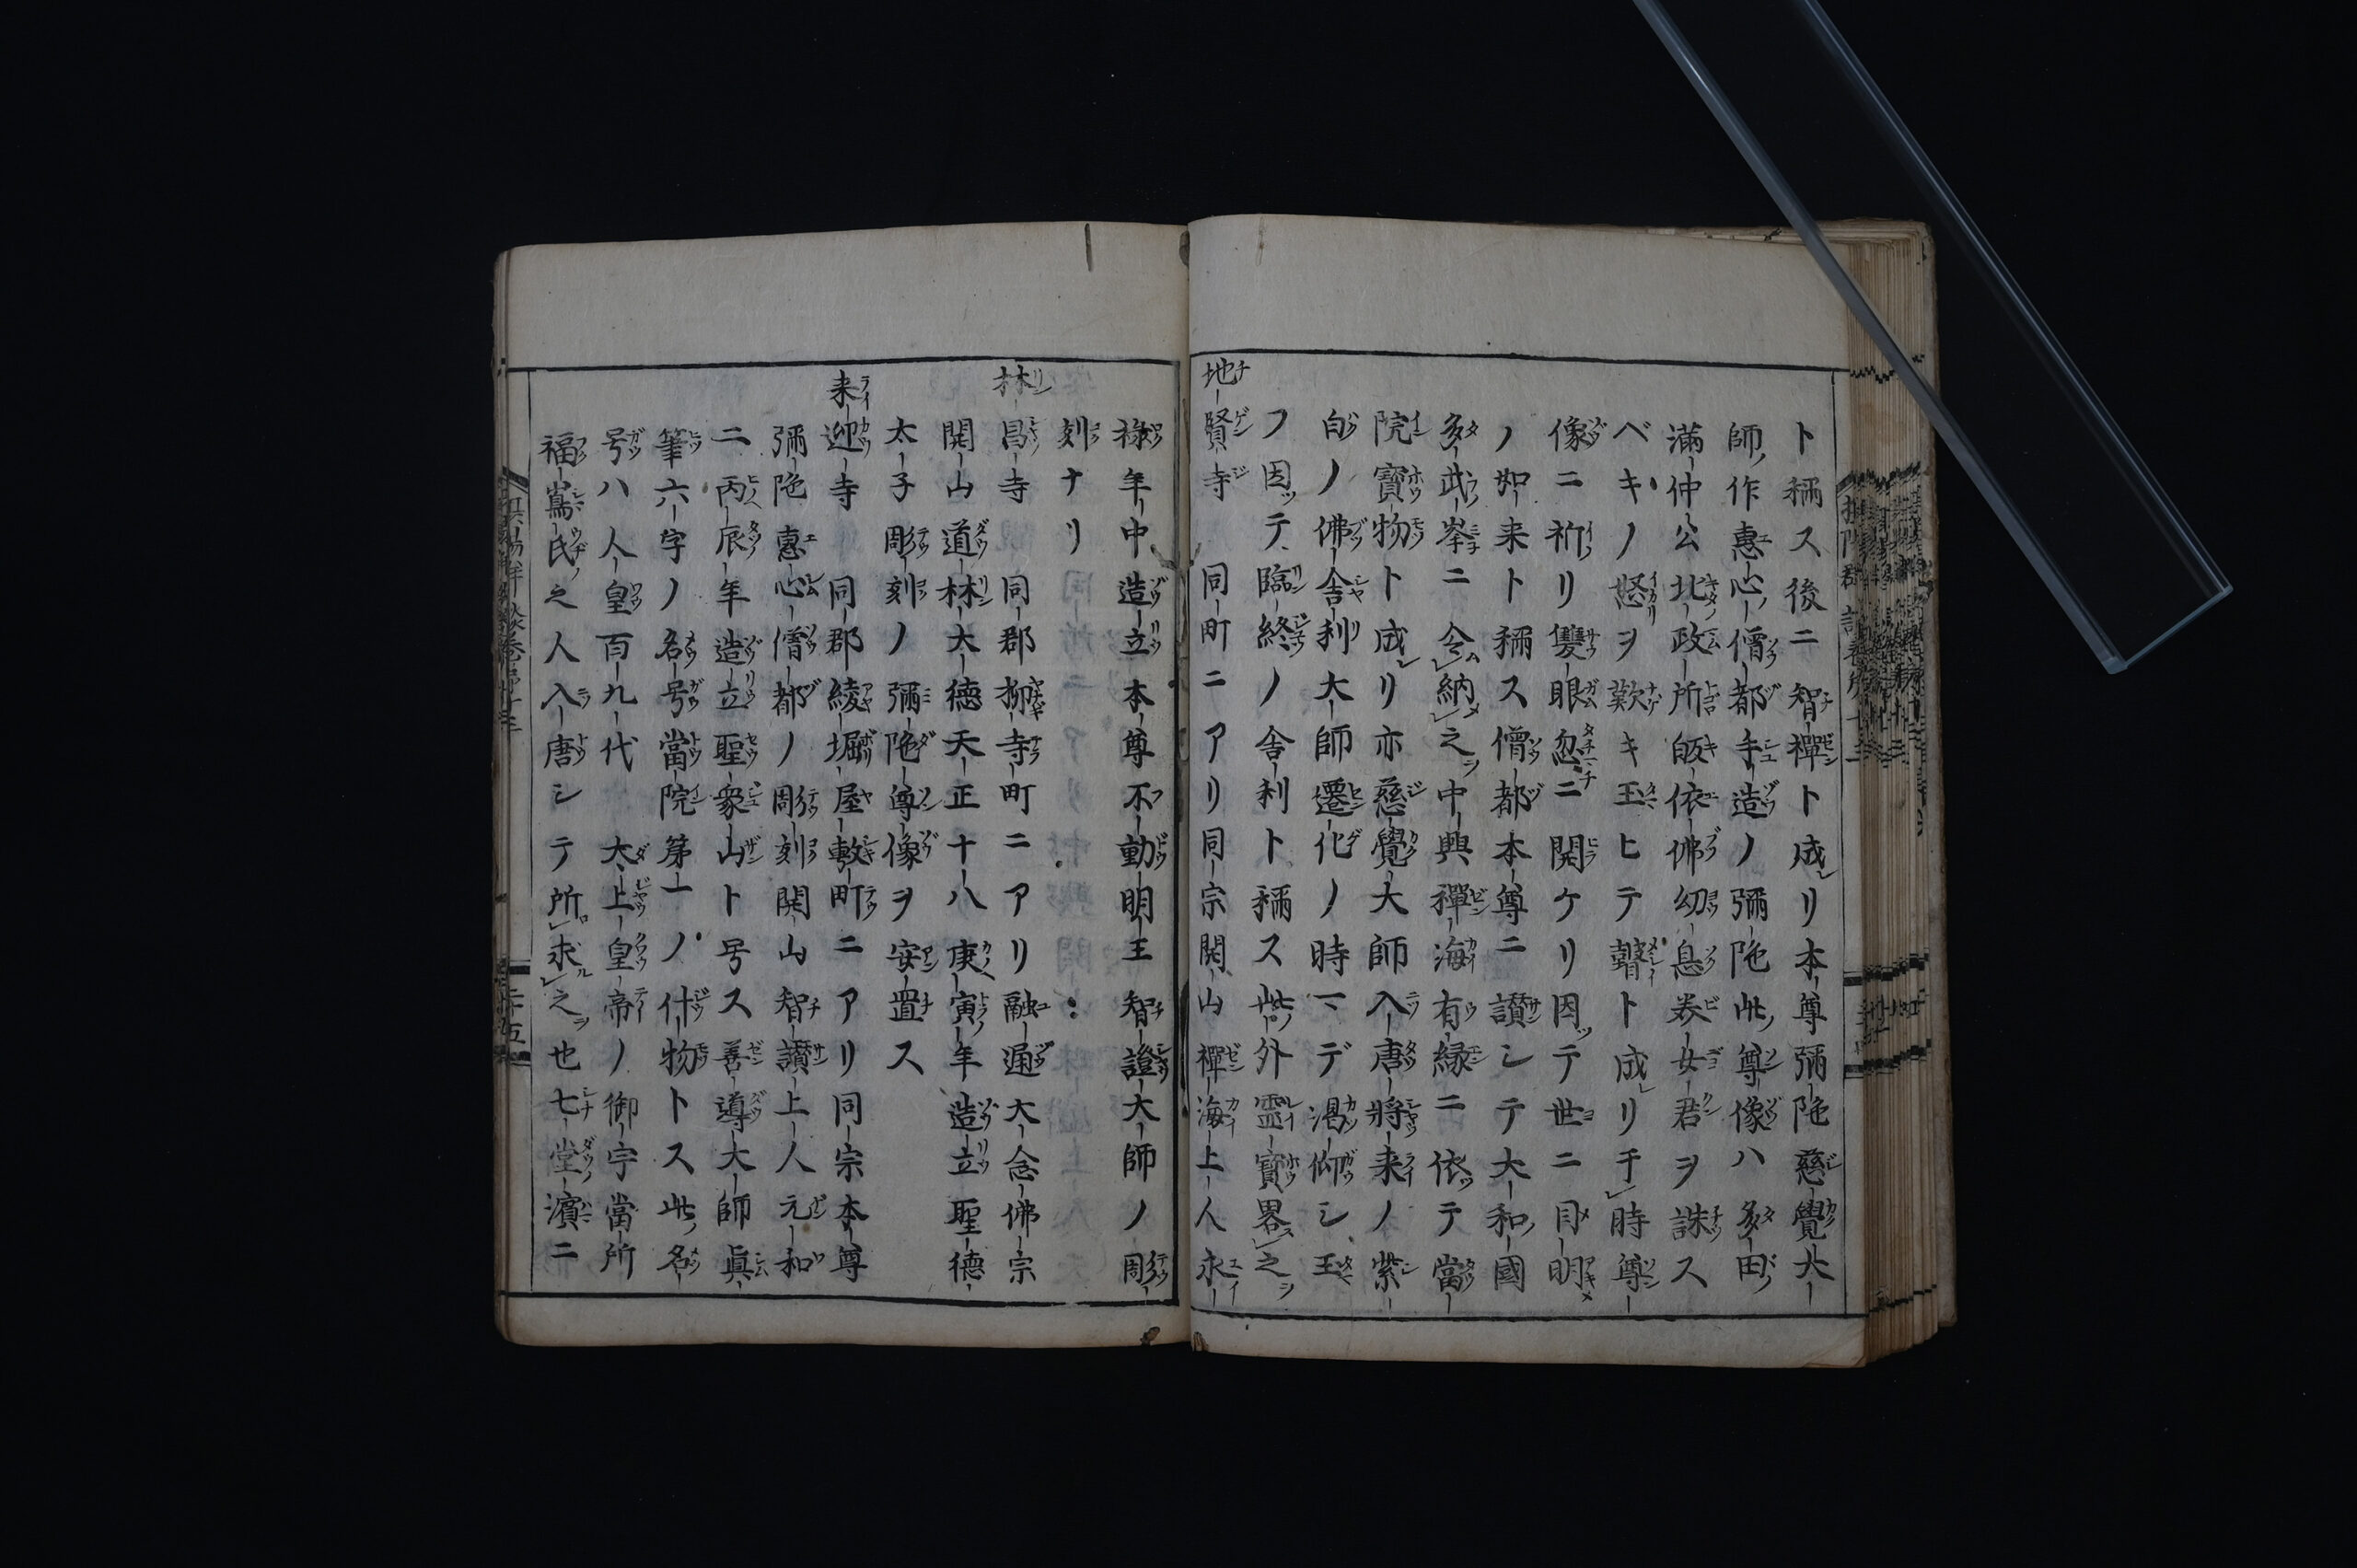 ト稱ス後ニ智禪ト成リ本尊彌陀慈覺大
師ノ作惠心ノ僧都手造ノ彌陀此ノ尊像ハ多田ノ
滿仲公北ノ政所皈依佛幼息券女君ヲ誅ス
ベキノ怒ヲ歎キ玉ヒテ瞽ト成リ于時尊
像ニ祈リ雙眼忽ニ開ケリ因テ世ニ目明
ノ如来ト稱ス僧都本尊ニ讃シテ大和ノ國
多武峯ニ令納之ヲ中興禪海有縁ニ依テ當
院寶物ト成リ亦慈覺大師入唐將来ノ紫
白ノ佛舎利大師遷化ノ時マデ渇仰シ玉
フ因テ臨終ノ舎利ト稱ス此ノ外靈寶畧之ヲ
地賢寺 同町ニアリ同宗開山禪海上人永
禄年中造立本尊不動明王智證大師ノ彫
刻ナリ
林昌寺 同郡柳寺町ニアリ融通大念佛宗
開山道林大德天正十八庚寅年造立聖德
太子彫刻ノ彌陀尊像ヲ安置ス
来迎寺 同郡綾堀屋敷町ニアリ同宗本尊
彌陀惠心僧都ノ彫刻開山智讃上人元和
二丙辰年造立聖衆山ト号ス善導大師眞
筆六字ノ名号當院第一ノ什物トス此ノ名
号ハ人皇百九代 太上皇帝ノ御宇當所
福嶌氏之人入唐シテ所求之ヲ也七堂濱ニ